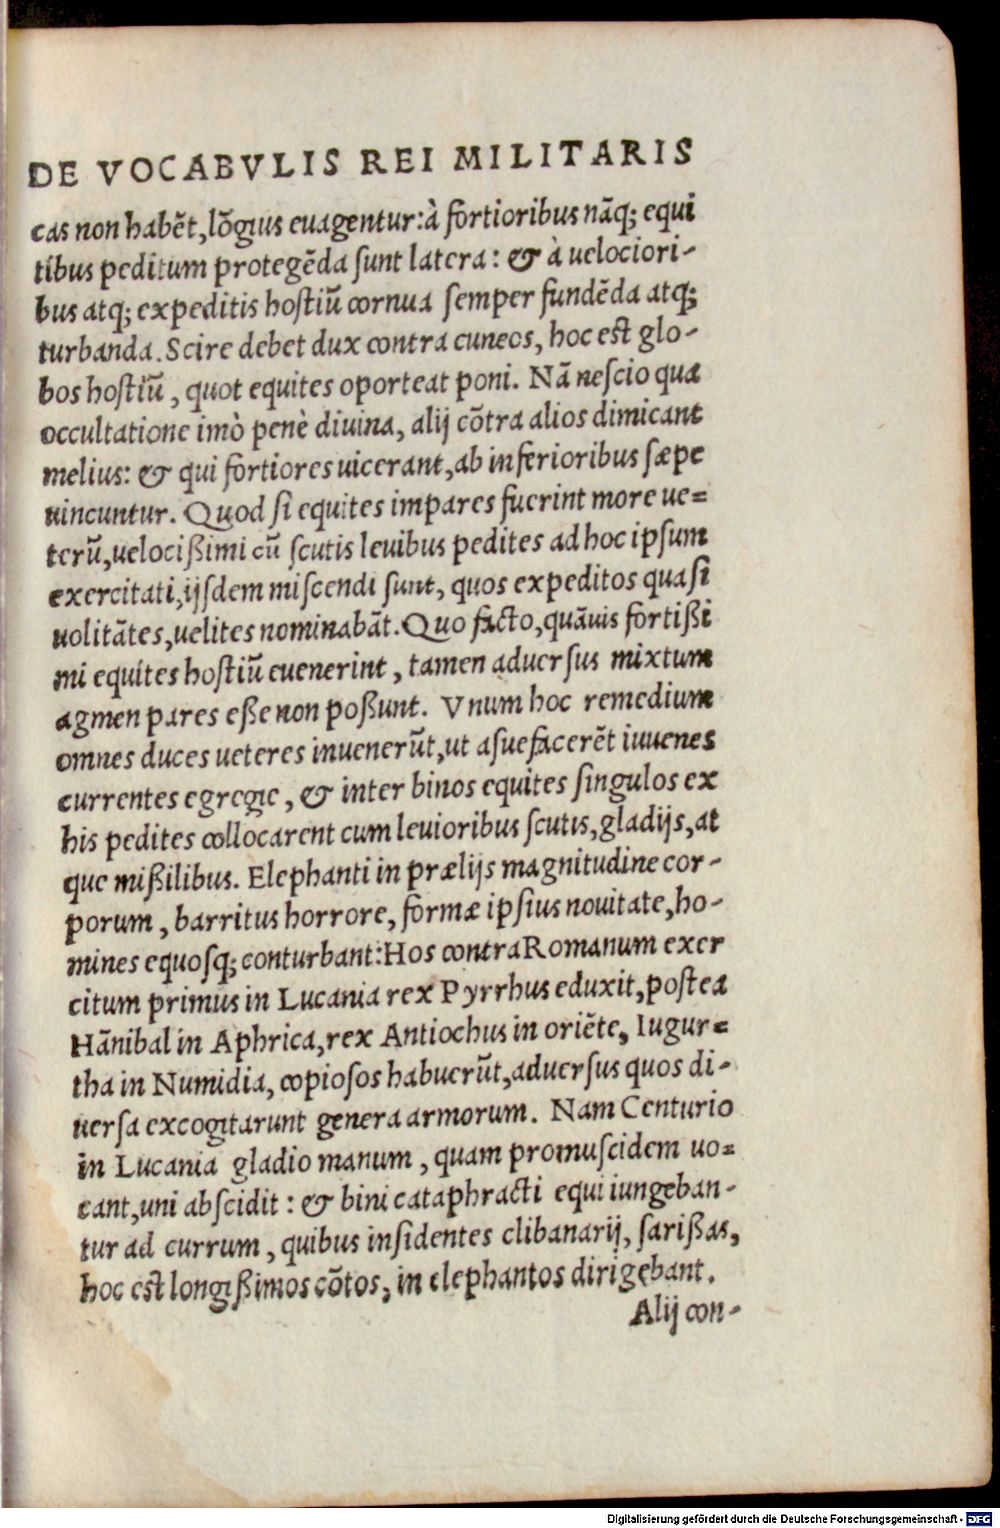 DE VOCABVLIS REI MILITARIS
cas non habẽt, lõgius euagentur: à fortioribus nãq; equi
tibus peditum protegẽda ſunt latera: & à uelociori-
bus atq; expeditis hoſtiũ cornua ſemper fundẽda atq;
turbanda. Scire debet dux contra cuneos, hoc eſt glo-
bos hoſtiũ, quot equites oporteat poni. Nã neſcio qua
occultatione imò penè diuina, alij cõtra alios dimicant
melius: & qui fortiores uicerant, ab inferioribus ſæpe
uincuntur. Quod ſi equites impares fuerint more ue=
terũ, uelocißimi cũ ſcutis leuibus pedites ad hoc ipſum
exercitati, ijſdem miſcendi ſunt, quos expeditos quaſi
uolitãtes, uelites nominabãt. Quo facto, quãuis fortißi
mi equites hoſtiũ euenerint, tamen aduerſus mixtum
agmen pares eße non poßunt. Vnum hoc remedium
omnes duces ueteres inuenerũt, ut aſuefacerẽt iuuenes
currentes egregie, & inter binos equites ſingulos ex
his pedites collocarent cum leuioribus ſcutis, gladijs, at
que mißilibus. Elephanti in prælijs magnitudine cor-
porum, barritus horrore, formæ ipſius nouitate, ho-
mines equoſq; conturbant: Hos contra Romanum exer
citum primus in Lucania rex Pyrrhus eduxit, poſtea
Hãnibal in Aphrica, rex Antiochus in oriẽte, Iugur=
tha in Numidia, copioſos habuerũt, aduerſus quos di-
uerſa excogitarunt genera armorum. Nam Centurio
in Lucania gladio manum, quam promuſcidem uo=
cant, uni abſcidit: & bini cataphracti equi iungeban-
tur ad currum, quibus inſidentes clibanarij, ſarißas,
hoc eſt longißimos cõtos, in elephantos dirigebant.
Alij con-
Digitalisierung gefördert durch die Deutsche Forschungsgemeinschaft - DFG